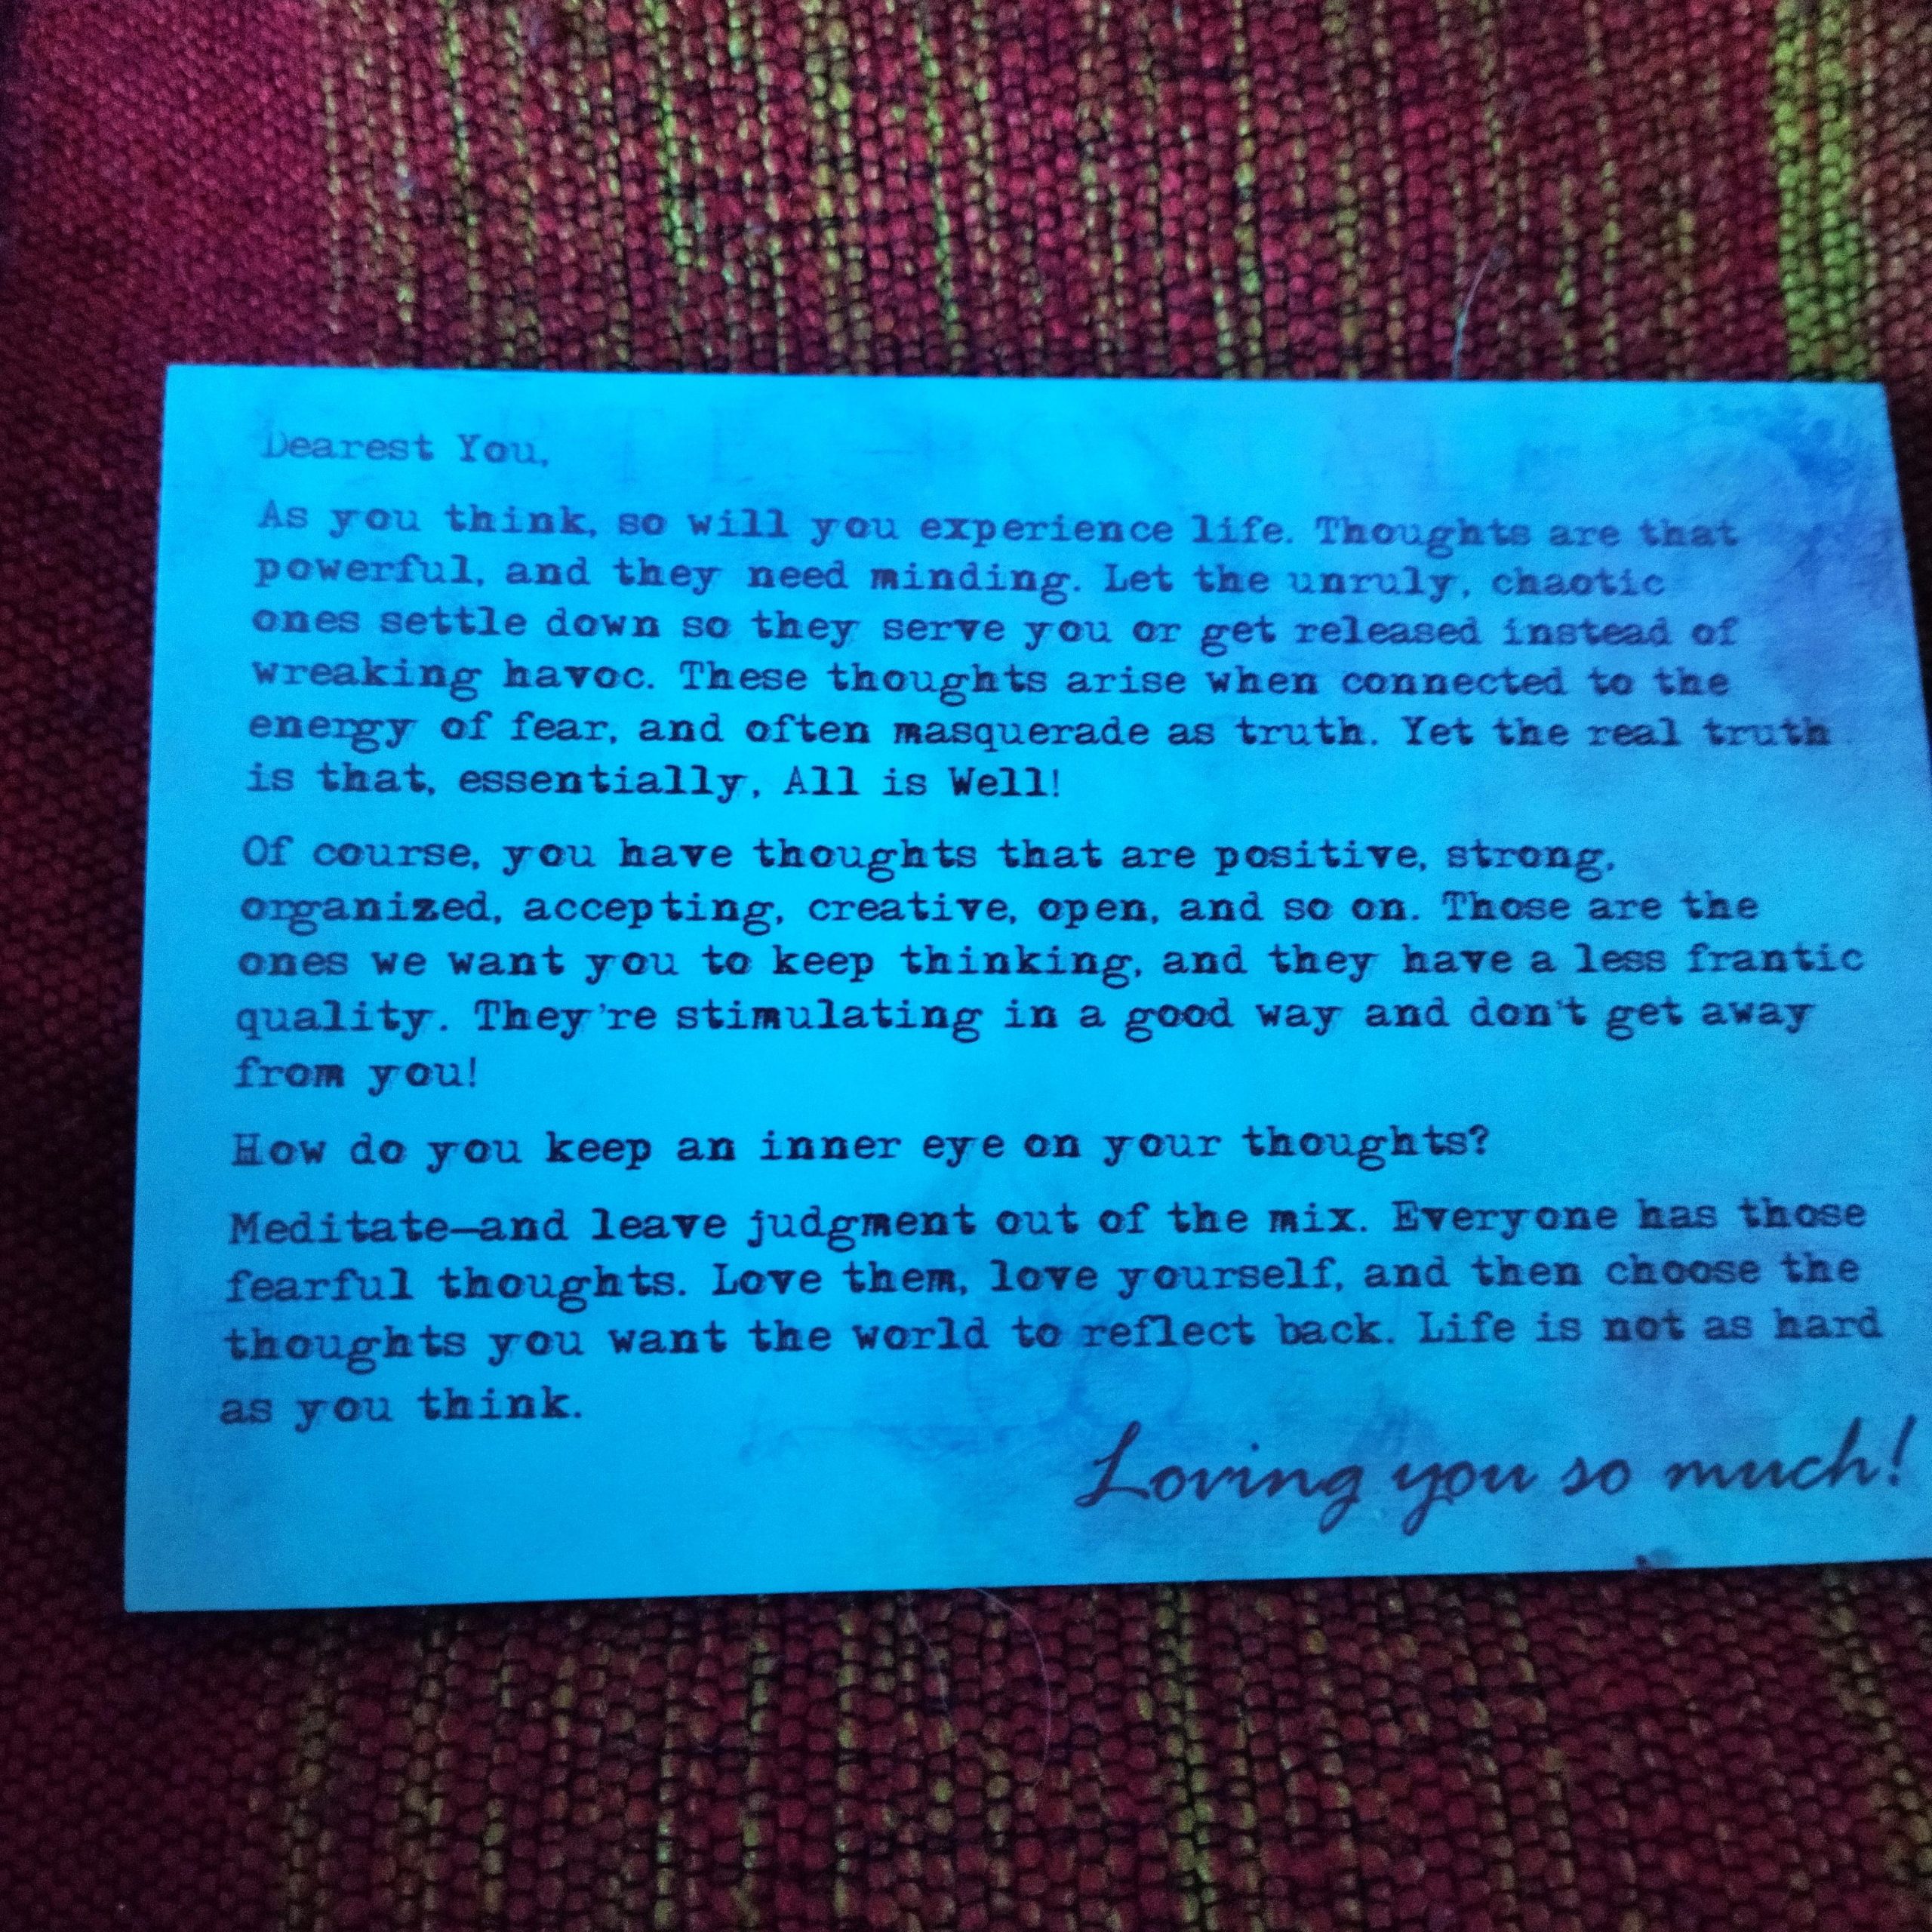 Dearest You,
As you think, so will you experience life. Thoughts are that
powerful, and they need minding. Let the unruly, chaotic
ones settle down so they serve you or get released instead of
wreaking havoc. These thoughts arise when connected to the
energy of fear, and often masquerade as truth. Yet the real truth
is that, essentially, All is Well!
Of course, you have thoughts that are positive, strong,
organized, accepting, creative, open, and so on. Those are the
ones we want you to keep thinking, and they have a less frantic
quality. They're stimulating in a good way and don't get away
from you!
How do you keep an inner eye on your thoughts?
Meditate—and leave judgment out of the mix. Everyone has those
fearful thoughts. Love them, love yourself, and then choose the
thoughts you want the world to reflect back. Life is not as hard
as you think.
Loving you so much!